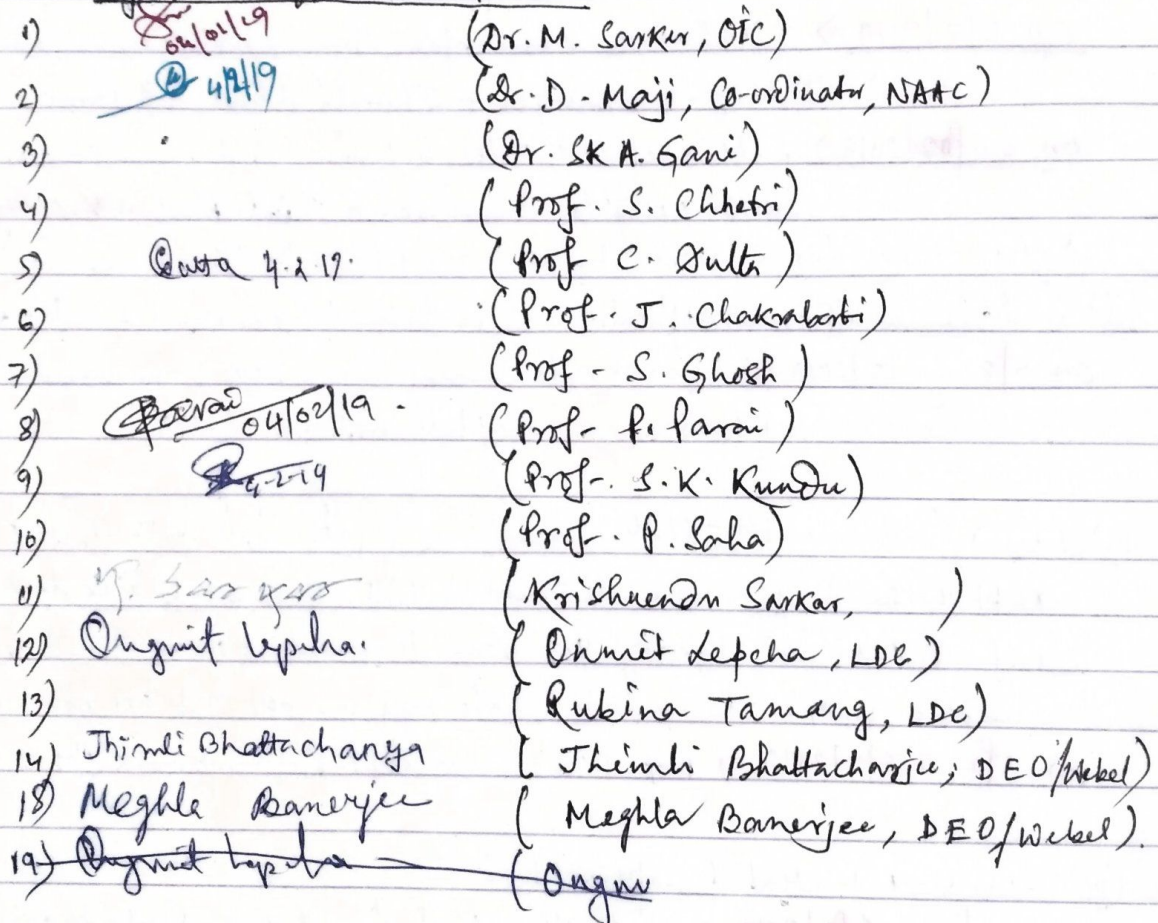 1) 04/01/19 (Dr. M. Sarkar, OIC)
2) 4/2/19 (Dr. D. Maji, Co-ordinator, NAAC)
3) (Dr. SK A. Gani)
4) (Prof. S. Chhetri)
5) Dutta 4.2.19. (Prof C. Dutta)
6) (Prof. J. Chakrabarti)
7) (Prof - S. Ghosh)
8) Parai 04/02/19. (Prof- P. Parai)
9) 4-2-19 (Prof-. S.K. Kundu)
10) (Prof. P. Saha)
11) K. Sarkar (Krishnendu Sarkar, )
12) Ongmit Lepcha. (Onmit Lepcha, LDC)
13) (Rubina Tamang, LDC)
14) Jhimli Bhattacharya ( Jhimli Bhattacharjee, DEO/Webel)
18) Meghla Banerjee ( Meghla Banerjee, DEO/Webel).
19) Ongmit Lepcha (Ongmi